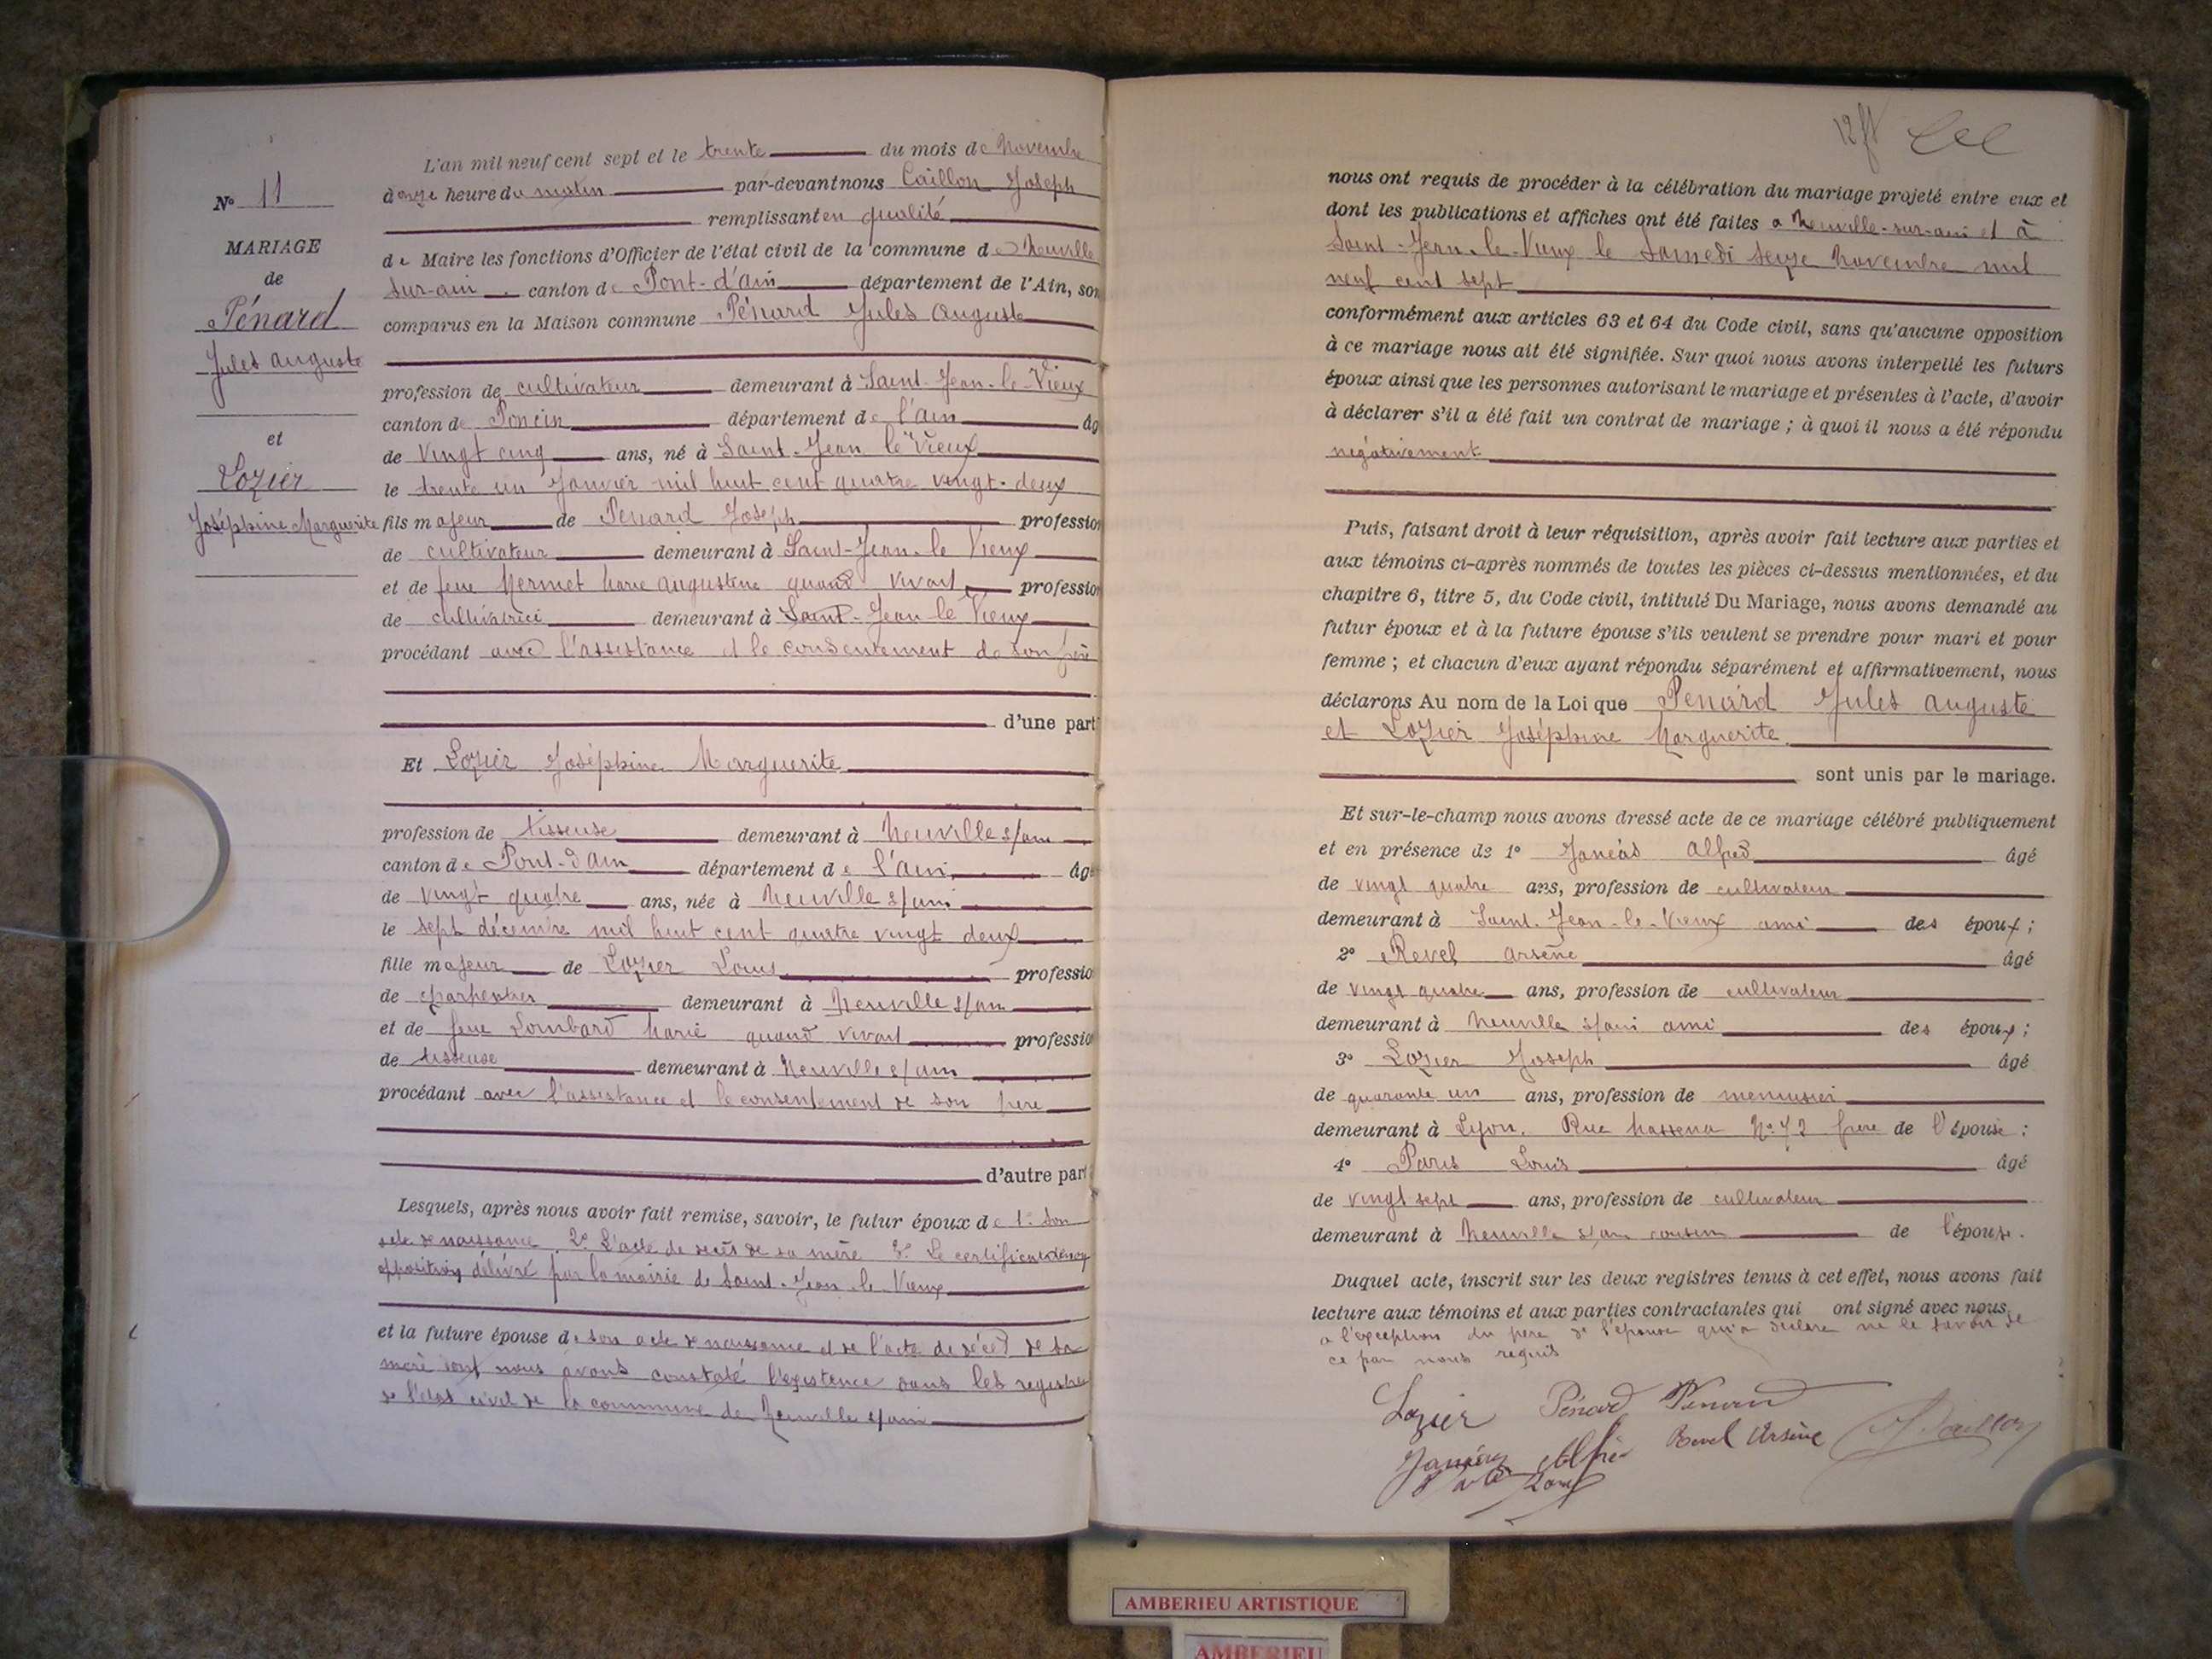 N° 11
MARIAGE
de
Pénard
Jules Auguste
et
Lozier
Joséphine Marguerite
L'an mil neuf cent sept et le trente du mois de Novembre
à onze heure du matin par-devant nous Caillon Joseph
remplissant en qualité
de Maire les fonctions d'Officier de l'état civil de la commune de Neuville
sur-ain canton de Pont-d'ain département de l'Ain, son
comparus en la Maison commune Pénard Jules Auguste
profession de cultivateur demeurant à Saint-Jean-le-Vieux
canton de Poncin département de l'ain âg
de vingt cinq ans, né à Saint-Jean le Vieux
le trente un Janvier mil huit cent quatre vingt-deux
fils majeur de Pénard Joseph profession
de cultivateur demeurant à Saint-Jean-le Vieux
et de feue Mermet Marie Augustine quand vivait profession
de cultivatrice demeurant à Saint-Jean le Vieux
procédant avec l'assistance et le consentement de son père
d'une part
Et Lozier Joséphine Marguerite
profession de tisseuse demeurant à Neuville s/ain
canton de Pont-d'ain département de l'ain âgé
de vingt quatre ans, née à Neuville s/ain
le sept décembre mil huit cent quatre vingt deux
fille majeur de Lozier Louis professio
de charpentier demeurant à Neuville s/ain
et de feue Lombard Marie quand vivait professio
de tisseuse demeurant à Neuville s/ain
procédant avec l'assistance et le consentement de son père
d'autre part
Lesquels, après nous avoir fait remise, savoir, le futur époux de 1° Son
acte de naissance 2° L'acte de décès de sa mère 3° Le certificat de non
opposition délivré par la mairie de Saint-Jean-le-Vieux
et la future épouse de son acte de naissance et de l'acte de décès de sa
mère dont nous avons constaté l'existence dans les registres
de l'état civil de la commune de Neuville s/ain
12 ft
nous ont requis de procéder à la célébration du mariage projeté entre eux et
dont les publications et affiches ont été faites a Neuville-sur-ain et à
Saint-Jean-le-Vieux le Samedi seize Novembre mil
neuf cent sept
conformément aux articles 63 et 64 du Code civil, sans qu'aucune opposition
à ce mariage nous ait été signifiée. Sur quoi nous avons interpellé les futurs
époux ainsi que les personnes autorisant le mariage et présentes à l'acte, d'avoir
à déclarer s'il a été fait un contrat de mariage ; à quoi il nous a été répondu
négativement
Puis, faisant droit à leur réquisition, après avoir fait lecture aux parties et
aux témoins ci-après nommés de toutes les pièces ci-dessus mentionnées, et du
chapitre 6, titre 5, du Code civil, intitulé Du Mariage, nous avons demandé au
futur époux et à la future épouse s'ils veulent se prendre pour mari et pour
femme ; et chacun d'eux ayant répondu séparément et affirmativement, nous
déclarons Au nom de la Loi que Pénard Jules Auguste
et Lozier Joséphine Marguerite
sont unis par le mariage.
Et sur-le-champ nous avons dressé acte de ce mariage célébré publiquement
et en présence de 1° Janéàs Alfred âgé
de vingt quatre ans, profession de cultivateur
demeurant à Saint-Jean-le-Vieux ami des époux ;
2° Revel Arsène âgé
de vingt quatre ans, profession de cultivateur
demeurant à Neuville s/ain ami des époux ;
3° Lozier Joseph âgé
de quarante un ans, profession de menuisier
demeurant à Lyon. Rue Massena N° 72 frère de l'épouse ;
4° Paris Louis âgé
de vingt sept ans, profession de cultivateur
demeurant à Neuville s/ain cousin de l'épouse.
Duquel acte, inscrit sur les deux registres tenus à cet effet, nous avons fait
lecture aux témoins et aux parties contractantes qui ont signé avec nous
a l'exception du père de l'épouse qui a déclaré ne le savoir de
ce par nous requis
Lozier Pénard Pénard
Alfred Revel Arsène J. Caillon
AMBERIEU ARTISTIQUE
AMBERIEU